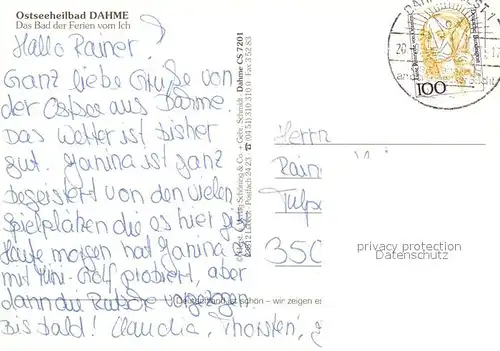 Ostseeheilbad DAHME
Das Bad der Ferien vom Ich
Hallo Rainer!
Ganz liebe Grüße von
der Ostsee aus Dahme
Das Wetter ist bisher
gut. Janina ist ganz
begeistert von den vielen
Spielplätzen die es hier gi
Heute morgen hat Janina
mit Mini-Golf probiert, aber
dann die Rutsche vorgezogen.
Bis bald! Claudia, Thorsten,
Schöning & Co + Gebr. Schmidt · Dahme CS 7201
Lübeck · Postfach 24 23 · ☎ (04 51) 310 310 · Fax 3 52 83
Deutschland ist schön – wir zeigen es
100
Deutsche Bundespost
Herrn
Rain
Tulpe
350
privacy protection
Datenschutz